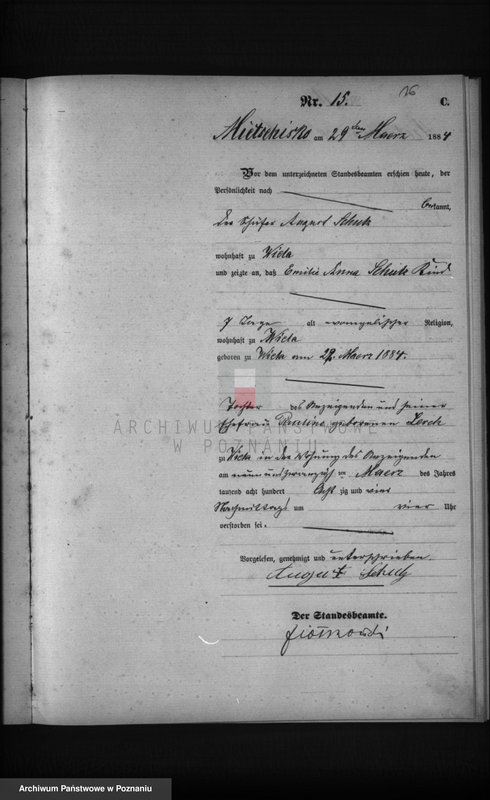 16
Nr. 15. C.
Mietschisko am 29 ten Maerz 1884
Vor dem unterzeichneten Standesbeamten erschien heute, der
Persönlichkeit nach
bekannt,
der Schäfer August Schulz
wohnhaft zu Wiela
und zeigte an, daß Emilie Anna Schulz Kind
7 Tage alt evangelischer Religion,
wohnhaft zu Wiela
geboren zu Wiela am 22. Maerz 1884.
Tochter des Anzeigenden und seiner
Ehefrau Pauline geborenen Lorch
zu Wiela in der Wohnung des Anzeigenden
am neun und zwanzigsten Maerz des Jahres
tausend acht hundert Acht zig und vier
Nachmittags um vier Uhr
verstorben sei.
Vorgelesen, genehmigt und unterschrieben.
August Schulz
Der Standesbeamte.
ARCHIWUM PAŃSTWOWE
W POZNANIU
Archiwum Państwowe w Poznaniu